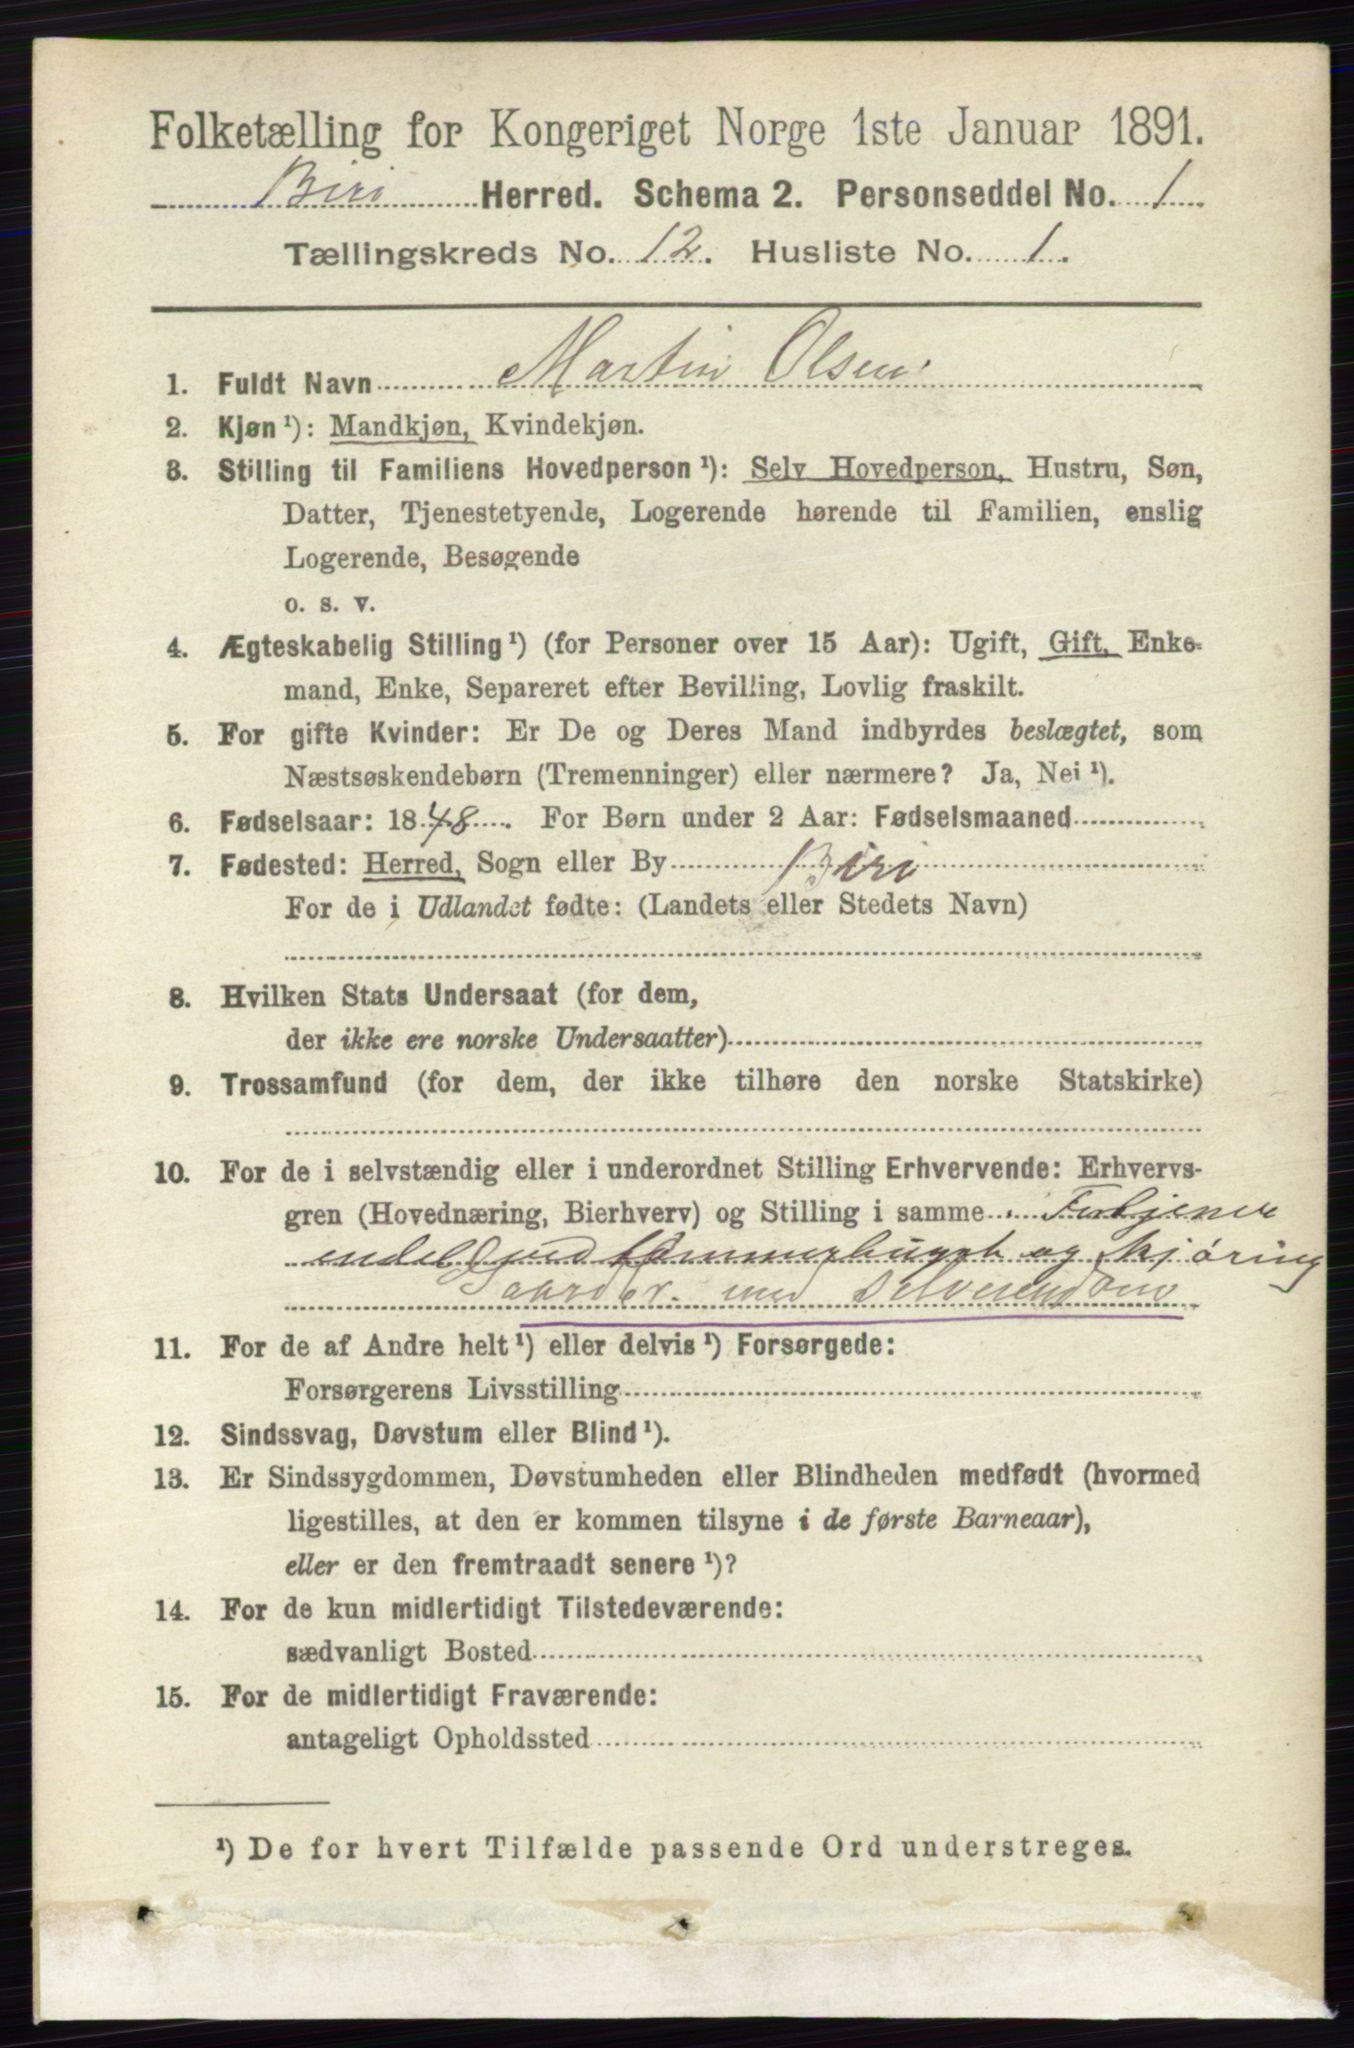 Folketælling for Kongeriget Norge 1ste Januar 1891.
Biri Herred. Schema 2. Personseddel No. 1
Tællingskreds No. 12. Husliste No. 1.
1. Fuldt Navn Martin Olsen
2. Kjøn ¹): Mandkjøn, Kvindekjøn.
3. Stilling til Familiens Hovedperson ¹): Selv Hovedperson, Hustru, Søn,
Datter, Tjenestetyende, Logerende hørende til Familien, enslig
Logerende, Besøgende
o. s. v.
4. Ægteskabelig Stilling ¹) (for Personer over 15 Aar): Ugift, Gift, Enke-
mand, Enke, Separeret efter Bevilling, Lovlig fraskilt.
5. For gifte Kvinder: Er De og Deres Mand indbyrdes beslægtet, som
Næstsøskendebørn (Tremenninger) eller nærmere? Ja, Nei ¹).
6. Fødselsaar: 1848. For Børn under 2 Aar: Fødselsmaaned
7. Fødested: Herred, Sogn eller By Biri
For de i Udlandet fødte: (Landets eller Stedets Navn)
8. Hvilken Stats Undersaat (for dem,
der ikke ere norske Undersaatter)
9. Trossamfund (for dem, der ikke tilhøre den norske Statskirke)
10. For de i selvstændig eller i underordnet Stilling Erhvervende: Erhvervs-
gren (Hovednæring, Bierhverv) og Stilling i samme. Fortjener
endel ved tømmerhugst og kjøring
Gaardbr. med selveiendom
11. For de af Andre helt ¹) eller delvis ¹) Forsørgede:
Forsørgerens Livsstilling
12. Sindssvag, Døvstum eller Blind ¹).
13. Er Sindssygdommen, Døvstumheden eller Blindheden medfødt (hvormed
ligestilles, at den er kommen tilsyne i de første Barneaar),
eller er den fremtraadt senere ¹)?
14. For de kun midlertidigt Tilstedeværende:
sædvanligt Bosted
15. For de midlertidigt Fraværende:
antageligt Opholdssted
¹) De for hvert Tilfælde passende Ord understreges.